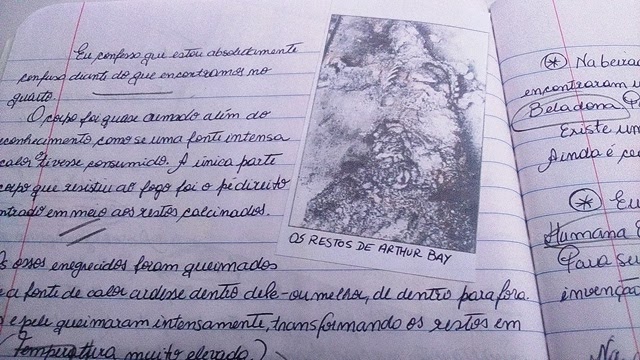 Eu confesso que estou absolutamente
confusa diante do que encontramos no
quarto.
O corpo foi quase queimado além do
conhecimento, como se uma fonte intensa
calor o tivesse consumido. A única parte
corpo que resistiu ao fogo foi o pé direito
ntrado em meio aos restos calcinados.
s ossos enegrecidos foram queimados
a fonte de calor ardesse dentro dele - ou melhor, de dentro para fora.
e pele queimaram intensamente, transformando os restos em
(Temperatura muito elevada.)
OS RESTOS DE ARTHUR BAY
* Na beira
encontraram
Beladona
Existe um
Ainda é
* Eu
Humana
Para su
invenção
Na